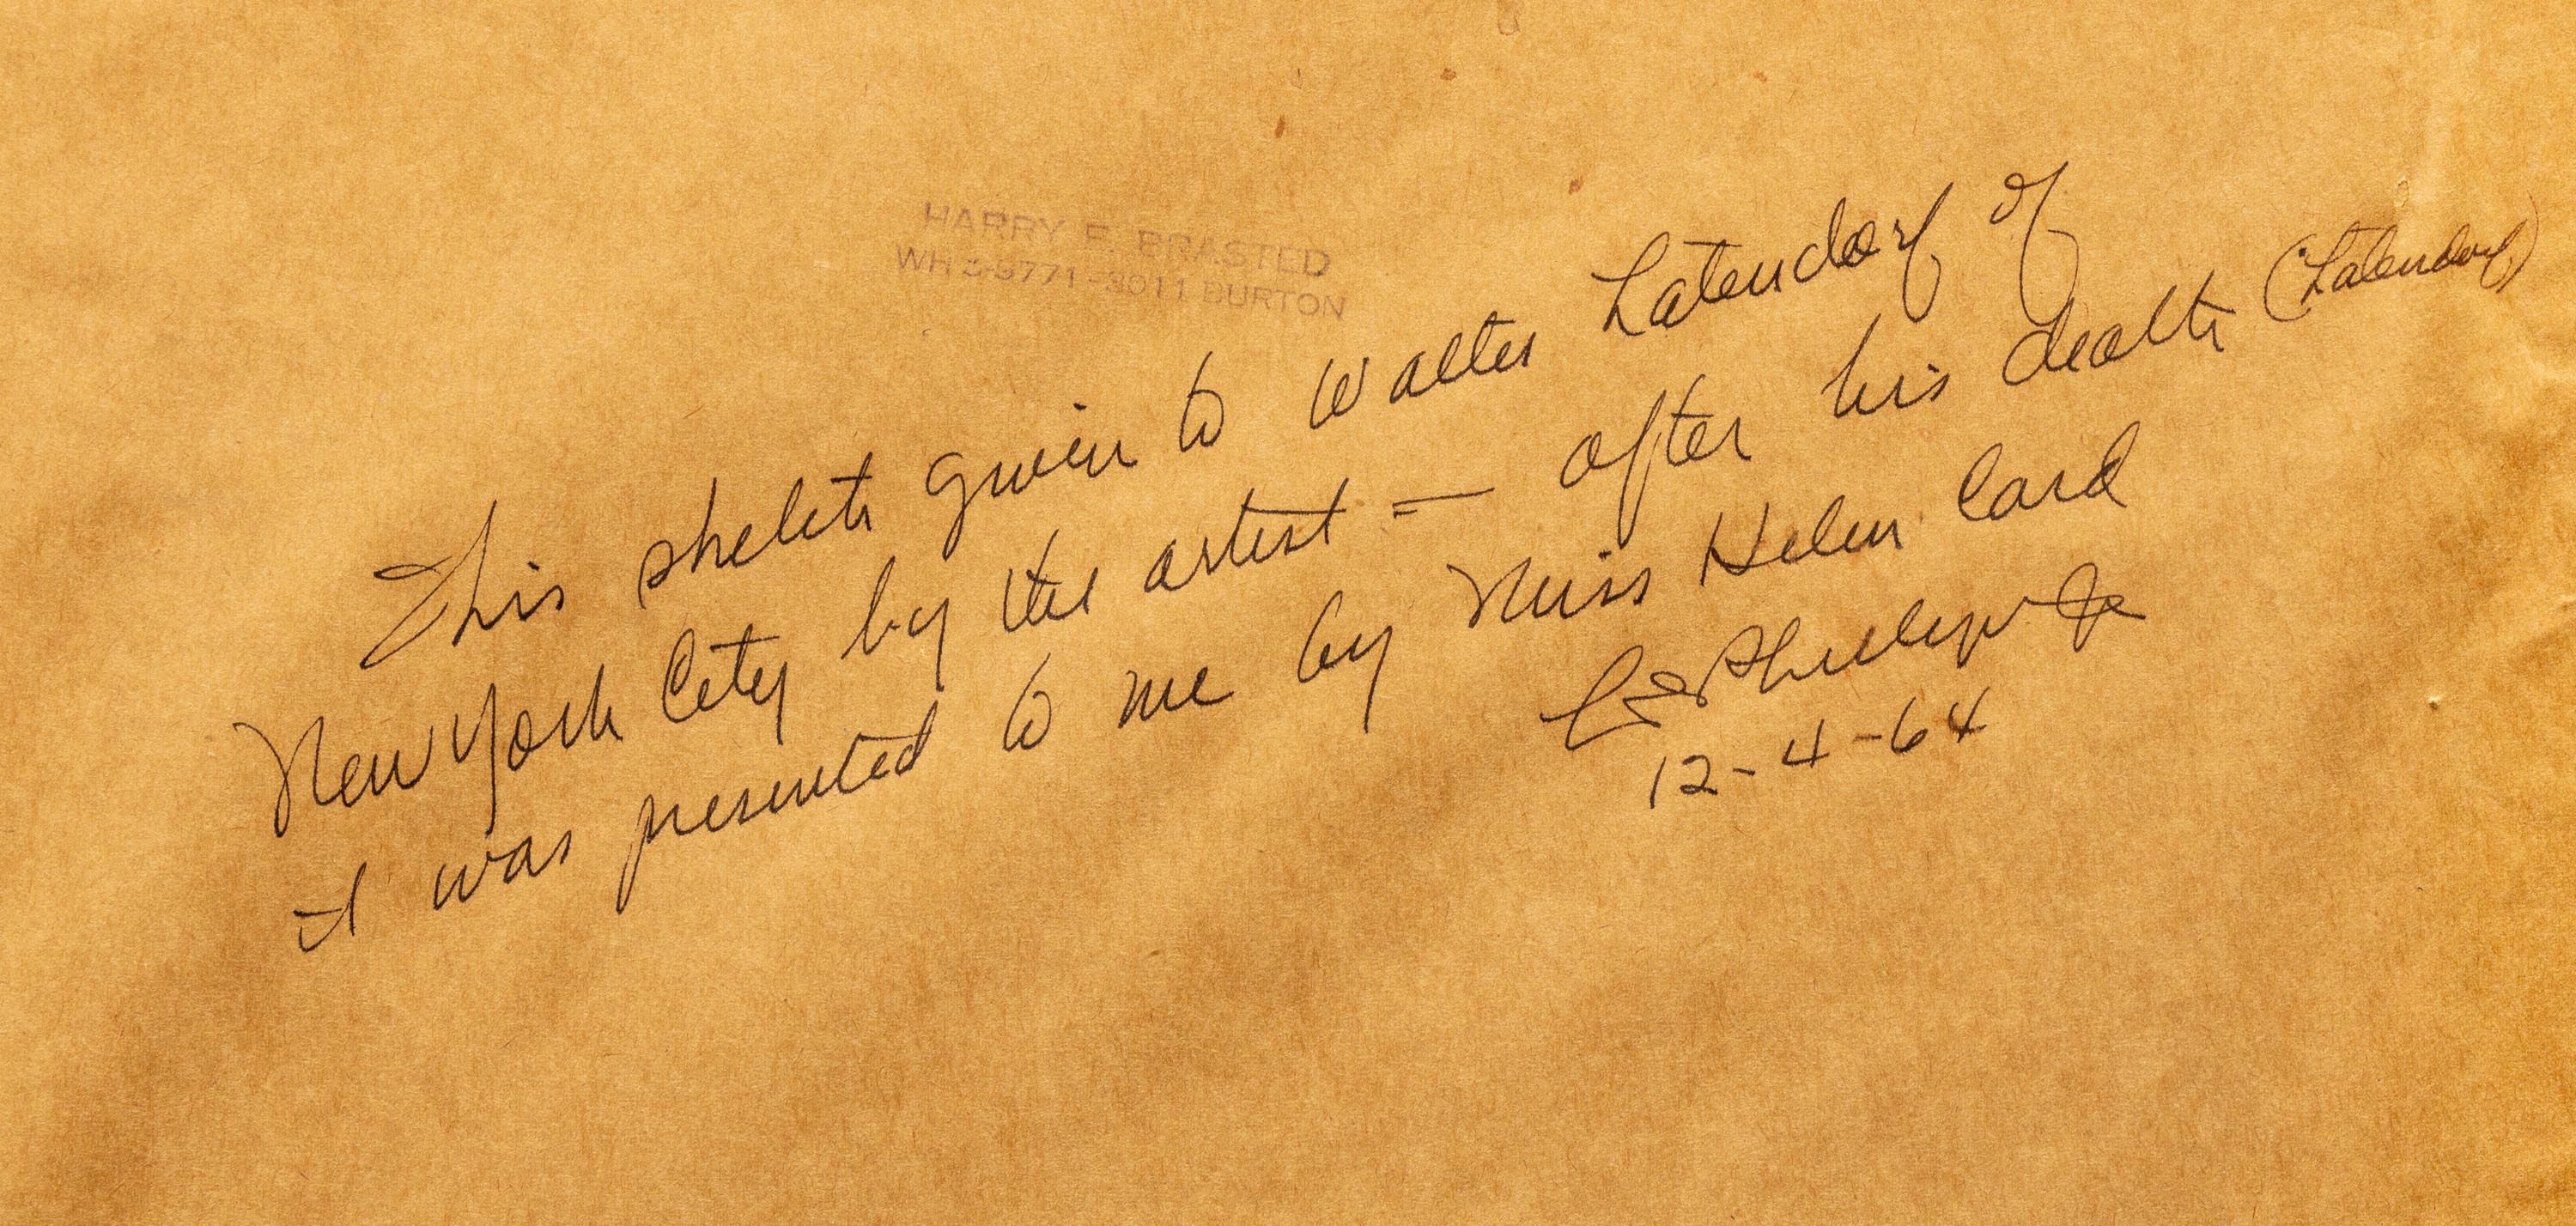 HARRY E. BRASTED
WH 3-5771-3011 BURTON
This sketch given to Walter Latendorf of
New York City by the artist — after his death (Latendorf)
it was presented to me by Miss Helen Card
Phillips Jr
12-4-64